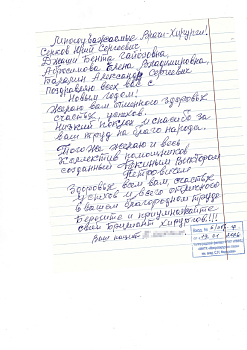 Многоуважаемые Врачи-Хирурги!
Серков Юрий Сергеевич,
Джаши Бенна Гайозовна,
Абросимова Елена Владимировна,
Александр Сергеевич
Поздравляю всех вас с
Новым годом!
Желаю вам отличного здоровья
счастья, успехов.
Низкий поклон и спасибо за
ваш труд на благо народа.
Того же желаю и весь
Коллектив помощников
созданный Виктором
Петровичем
Здоровья всем вам, счастья
успехов и всего отличного
в вашем благородном труде
Берегите и приумножайте
свой бриллиант хирургов!!!
Ваш пациент